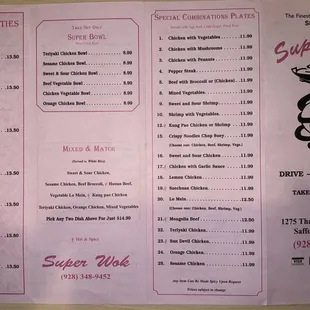 TIES
13.50
13.50
13.50
Super Bowl
Teriyaki Chicken Bowl 8.99
Sesame Chicken Bowl 8.99
Sweet & Sour Chicken Bowl 8.99
Beef Vegetable Bowl 8.99
Chicken Vegetable Bowl 8.99
Orange Chicken Bowl 8.99
Mixed & Match
(Served w. White Rice)
Sweet & Sour Chicken,
Sesame Chicken, Beef Broccoli, Hunan Beef,
Vegetable Lo Mein, Kung pao Chicken
Teriyaki Chicken, Orange Chicken, Mixed Vegetables
Pick Any Two Dish Above For Just $14.99
Hot & Spicy
Super Wok
(928) 348-9452
Special Combinations Plates
1. Chicken with Vegetables 11.99
2. Chicken with Mushrooms 11.99
3. Chicken with Peanuts 11.99
4. Pepper Steak 11.99
5. Beef with Broccoli or (Chicken) 11.99
8. Mixed Vegetables 11.99
9. Sweet and Sour Shrimp 11.99
10. Shrimp with Vegetables 11.99
12. Kung Pao Chicken or Shrimp 11.99
15. Crispy Noodles Chop Suey 11.99
(Choose your Chicken, Beef, Shrimp, Veg.)
16. Sweet and Sour Chicken 11.99
17. Chicken with Garlic Sauce 11.99
18. Lemon Chicken 11.99
19. Szechuan Chicken 11.99
20. Lo Mein 12.50
(Choose your Chicken, Beef, Shrimp, Veg)
21. Mongolia Beef 12.50
22. Teriyaki Chicken 11.99
23. Sun Devil Chicken 11.99
24. Orange Chicken 11.99
25. Sesame Chicken 11.99
any Item Can Be Made Spicy Upon Request
Prices subject to change
The Finest
Sup
DRIVE -
TAKE
1275 Tha
Saffo
(928